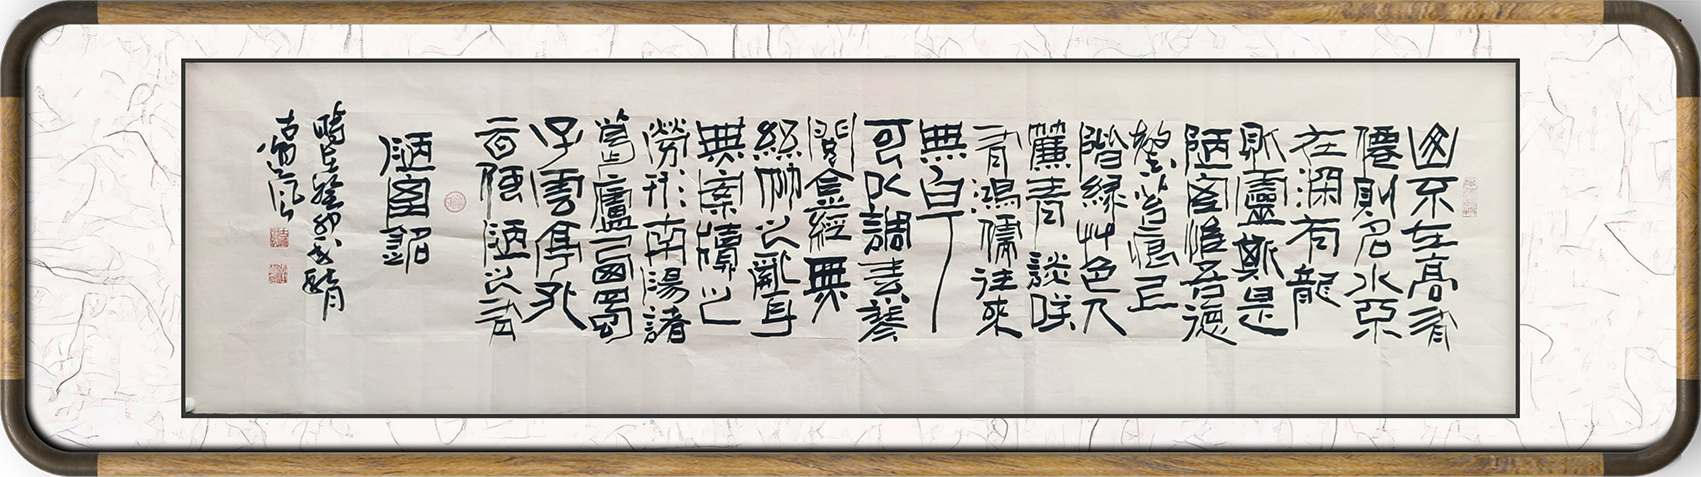 山不在高有
僊則名水不
在深有龍
則靈斯是
陋室惟吾德
馨苔痕上
階緑艸色入
簾青談咲
有鴻儒往來
無白丁
可以調素琴
閱金經無
絲竹之亂耳
無案牘之
勞形南陽諸
葛廬西蜀
子雲亭孔
云何陋之有
陋室銘
時在癸卯